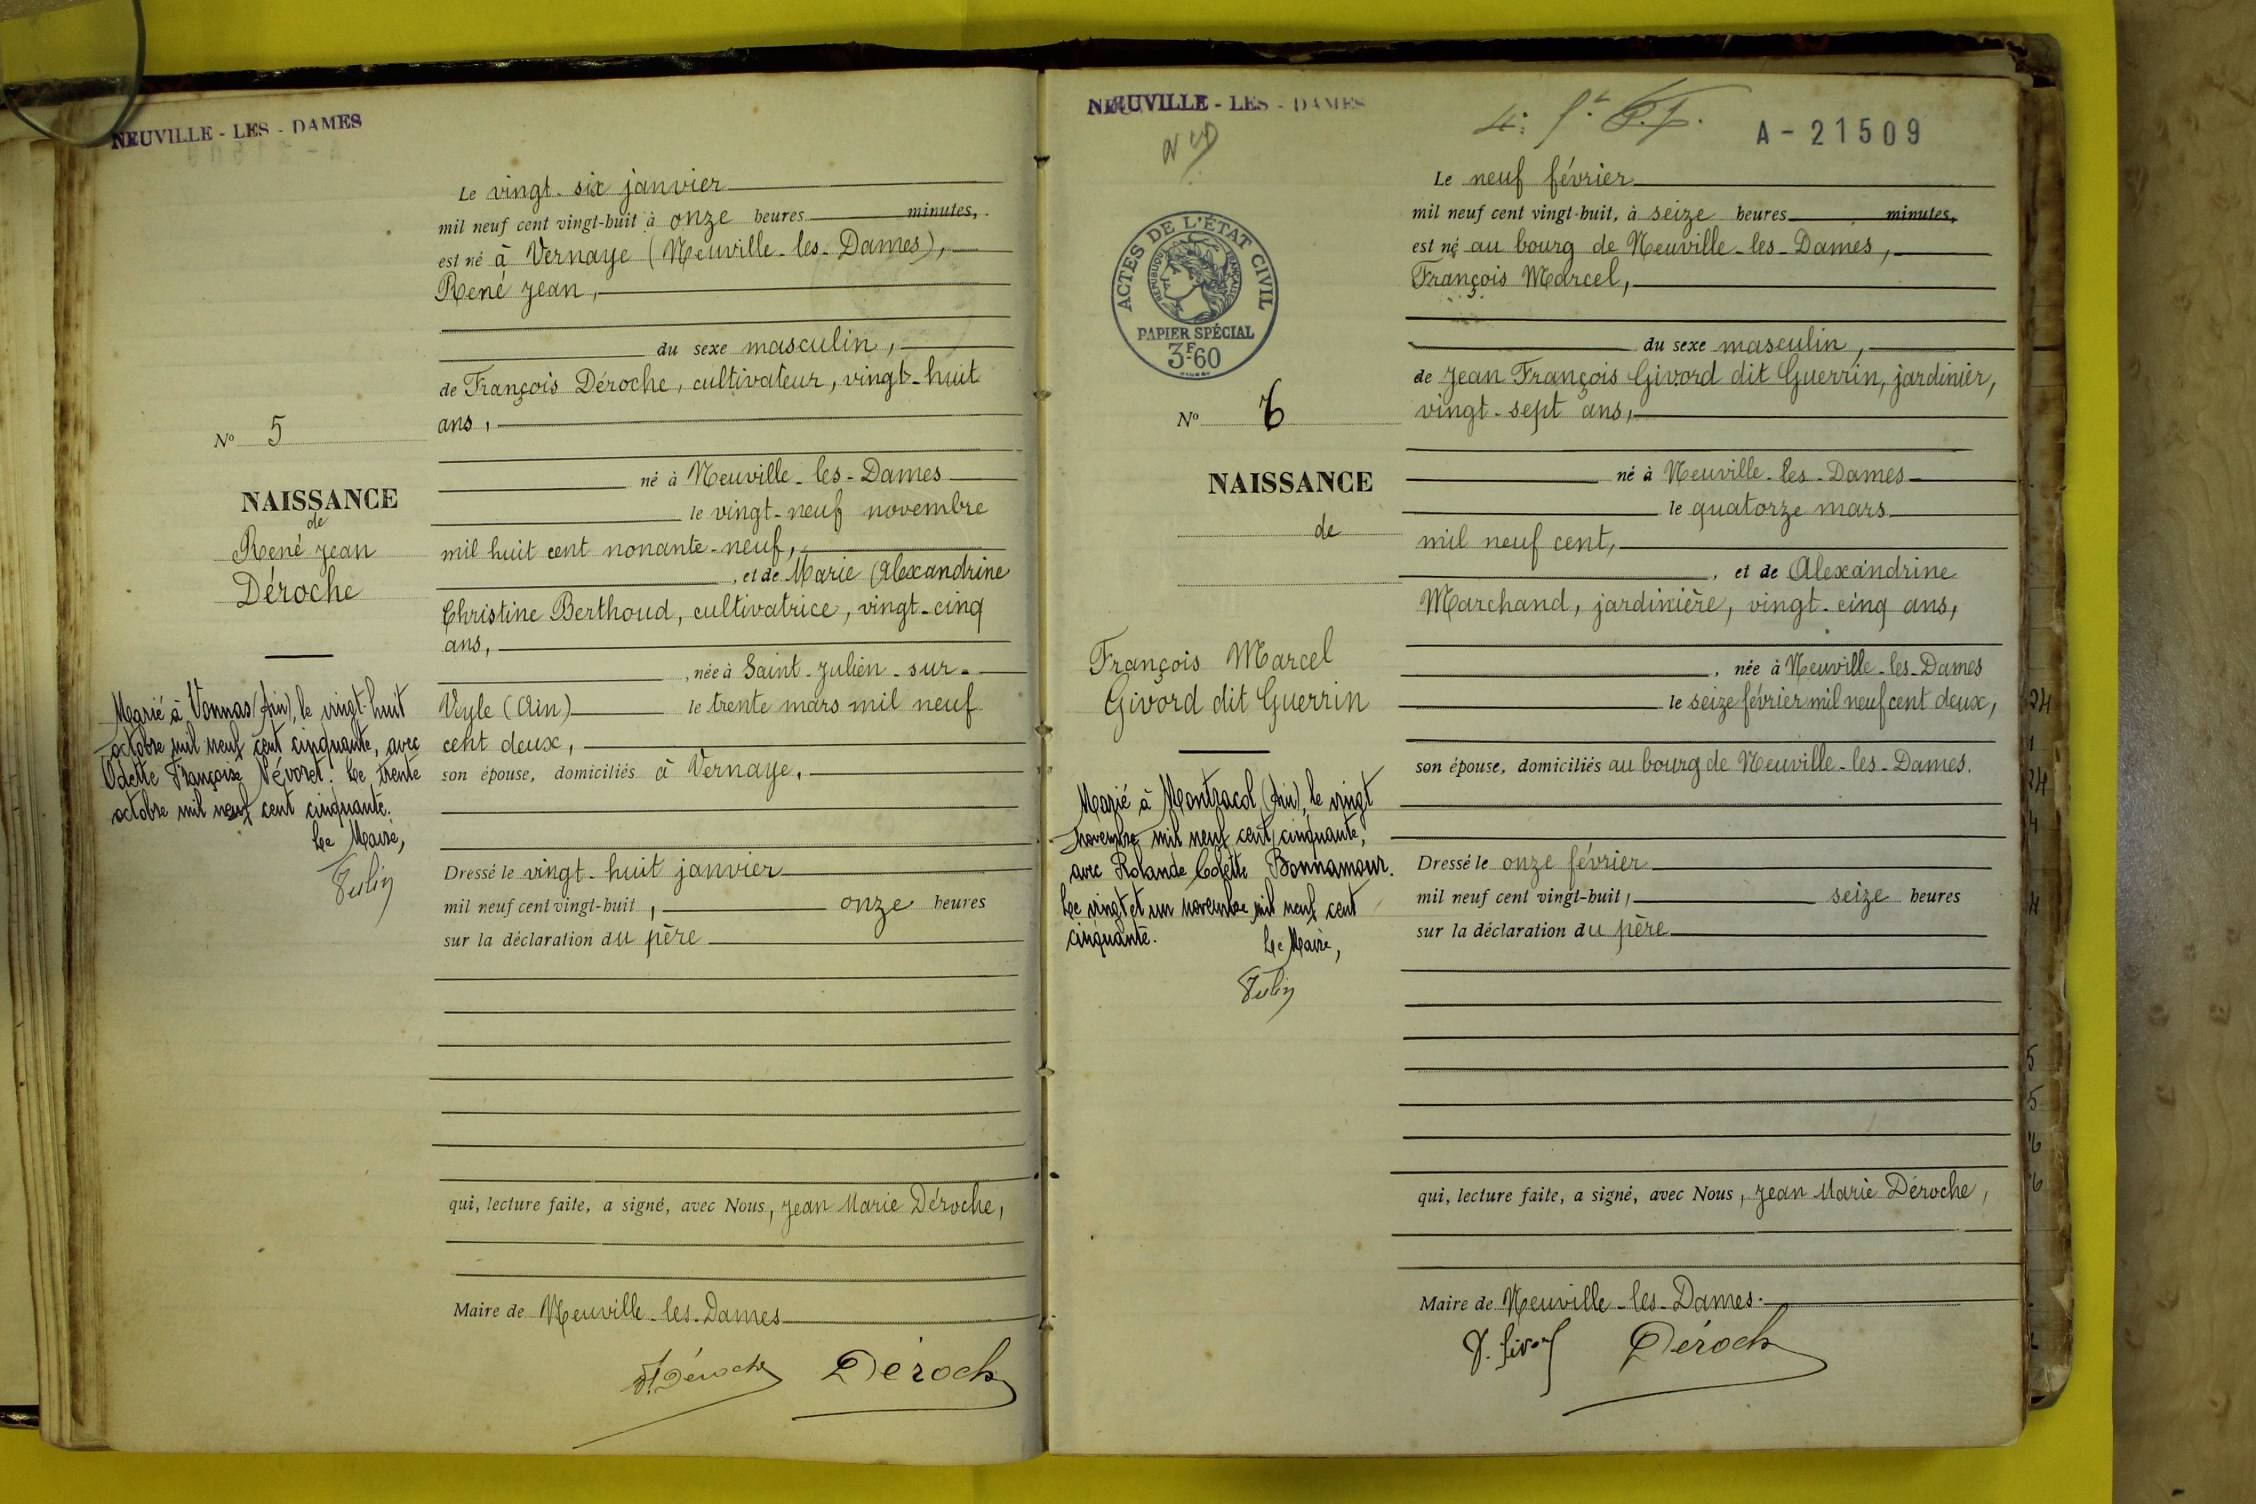 NEUVILLE - LES - DAMES
Le vingt-six janvier
mil neuf cent vingt-huit à onze heures minutes,
est né à Vernaye (Neuville-les-Dames),
René Jean,
du sexe masculin,
de François Déroche, cultivateur, vingt-huit
ans,
né à Neuville-les-Dames
le vingt-neuf novembre
mil huit cent nonante-neuf,
, et de Marie Alexandrine
Christine Berthoud, cultivatrice, vingt-cinq
ans,
, née à Saint-Julien-sur-
Veyle (Ain) le trente mars mil neuf
cent deux,
son épouse, domiciliés à Vernaye.
Dressé le vingt-huit janvier
mil neuf cent vingt-huit, onze heures
sur la déclaration du père
qui, lecture faite, a signé, avec Nous, Jean Marie Déroche,
Maire de Neuville-les-Dames
F. Déroche Déroche
No 5
NAISSANCE
de
René Jean
Déroche
Marié à Vonnas (Ain), le vingt-huit
octobre mil neuf cent cinquante, avec
Odette Françoise Névoret. Le trente
octobre mil neuf cent cinquante.
Le Maire,
NEUVILLE - LES - DAMES
A - 21509
ACTES DE L'ÉTAT CIVIL
RÉPUBLIQUE FRANÇAISE
PAPIER SPÉCIAL
3F60
Le neuf février
mil neuf cent vingt-huit, à seize heures minutes,
est né au bourg de Neuville-les-Dames,
François Marcel,
du sexe masculin,
de Jean François Givord dit Guerrin, jardinier,
vingt-sept ans,
né à Neuville-les-Dames
le quatorze mars
mil neuf cent,
, et de Alexandrine
Marchand, jardinière, vingt-cinq ans,
, née à Neuville-les-Dames
le seize février mil neuf cent deux,
son épouse, domiciliés au bourg de Neuville-les-Dames.
Dressé le onze février
mil neuf cent vingt-huit, seize heures
sur la déclaration du père
qui, lecture faite, a signé, avec Nous, Jean Marie Déroche,
Maire de Neuville-les-Dames.
Déroche
No 6
NAISSANCE
de
François Marcel
Givord dit Guerrin
Marié à Montracol (Ain), le vingt
novembre mil neuf cent cinquante,
avec Rolande Colette Bonnamour.
Le vingt et un novembre mil neuf cent
cinquante.
Le Maire,
24
24
4
4
5
5
6
6